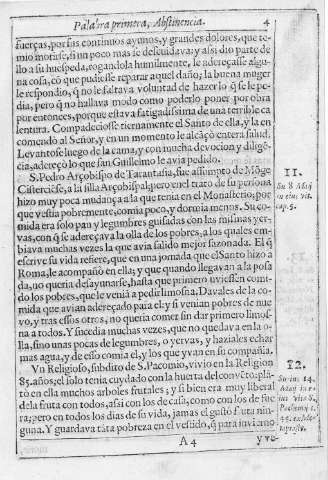 Palabra primera, Abstinencia. 4
fuerças, por sus continuos ayunos, y grandes dolores, que te-
mio morirse, si un poco mas se descuidava: y assi dio parte de
llo a su huespeda, rogandola humilmente, le adereçasse algu-
na cosa, cõ que pudiesse reparar aquel daño; la buena muger
le respondio, q̃ no le faltava voluntad de hazer lo q̃ se le pe-
dia, pero q̃ no hallava modo como poderlo poner por obra
por entonces, porque estava fatigadissima de una terrible ca
lentura. Compadeciose tiernamente el Santo de ella, y la en
comendo al Señor, y en un momento le alcãçò entera salud.
Levantose luego de la cama, y con mucha devocion y diligẽ-
cia, adereçò lo que san Guillelmo le avia pedido.
S. Pedro Arçobispo de Tarantasia, fue assumpto de Mõge
Cisterciẽse, a la silla Arçobispal; pero en el trato de su persona
hizo muy poca mudança a la que tenia en el Monasterio; por
que vestia pobremente, comia poco, y dormia menos. Su co-
mida era solo pan y legumbres guisadas con las mismas yer-
vas, con q̃ se adereçava la olla de los pobres, a los quales em-
biava muchas vezes la que avia salido mejor sazonada. El q̃
escrive su vida refiere, que en una jornada que el Santo hizo a
Roma, le acompañò en ella; y que quando llegavan a la posa
da, no queria desayunarse, hasta que primero uviessen comi-
do los pobres, que le veniã a pedir limosna. Davales de la co-
mida que avian adereçado para el: y si venian pobres de nue
vo, y tras essos otros, no queria comer sin dar primero limos-
na a todos. Y sucedia muchas vezes, que no quedava en la o-
lla, sino unas pocas de legumbres, o yervas, y haziales echar
mas agua, y de esso comia el, y los que yvan en su compañia.
Vn Religioso, subdito de S. Pacomio, vivio en la Religion
85. años; el solo tenia cuydado con la huerta del convẽto: plã-
tò en ella muchos arboles frutales; y si bien era muy liberal
de la fruta con todos, assi con los de casa, como con los de fue
ra; pero en todos los dias de su vida, jamas el gustò fruta nin-
guna. Y guardava tãta pobreza en el vestido, q̃ para invierno
A 4 y ve-
11.
Sur. 8. Maij
in eius vit.
cap. 5.
12.
Sur. to. 14.
Maij in e-
ius vita S.